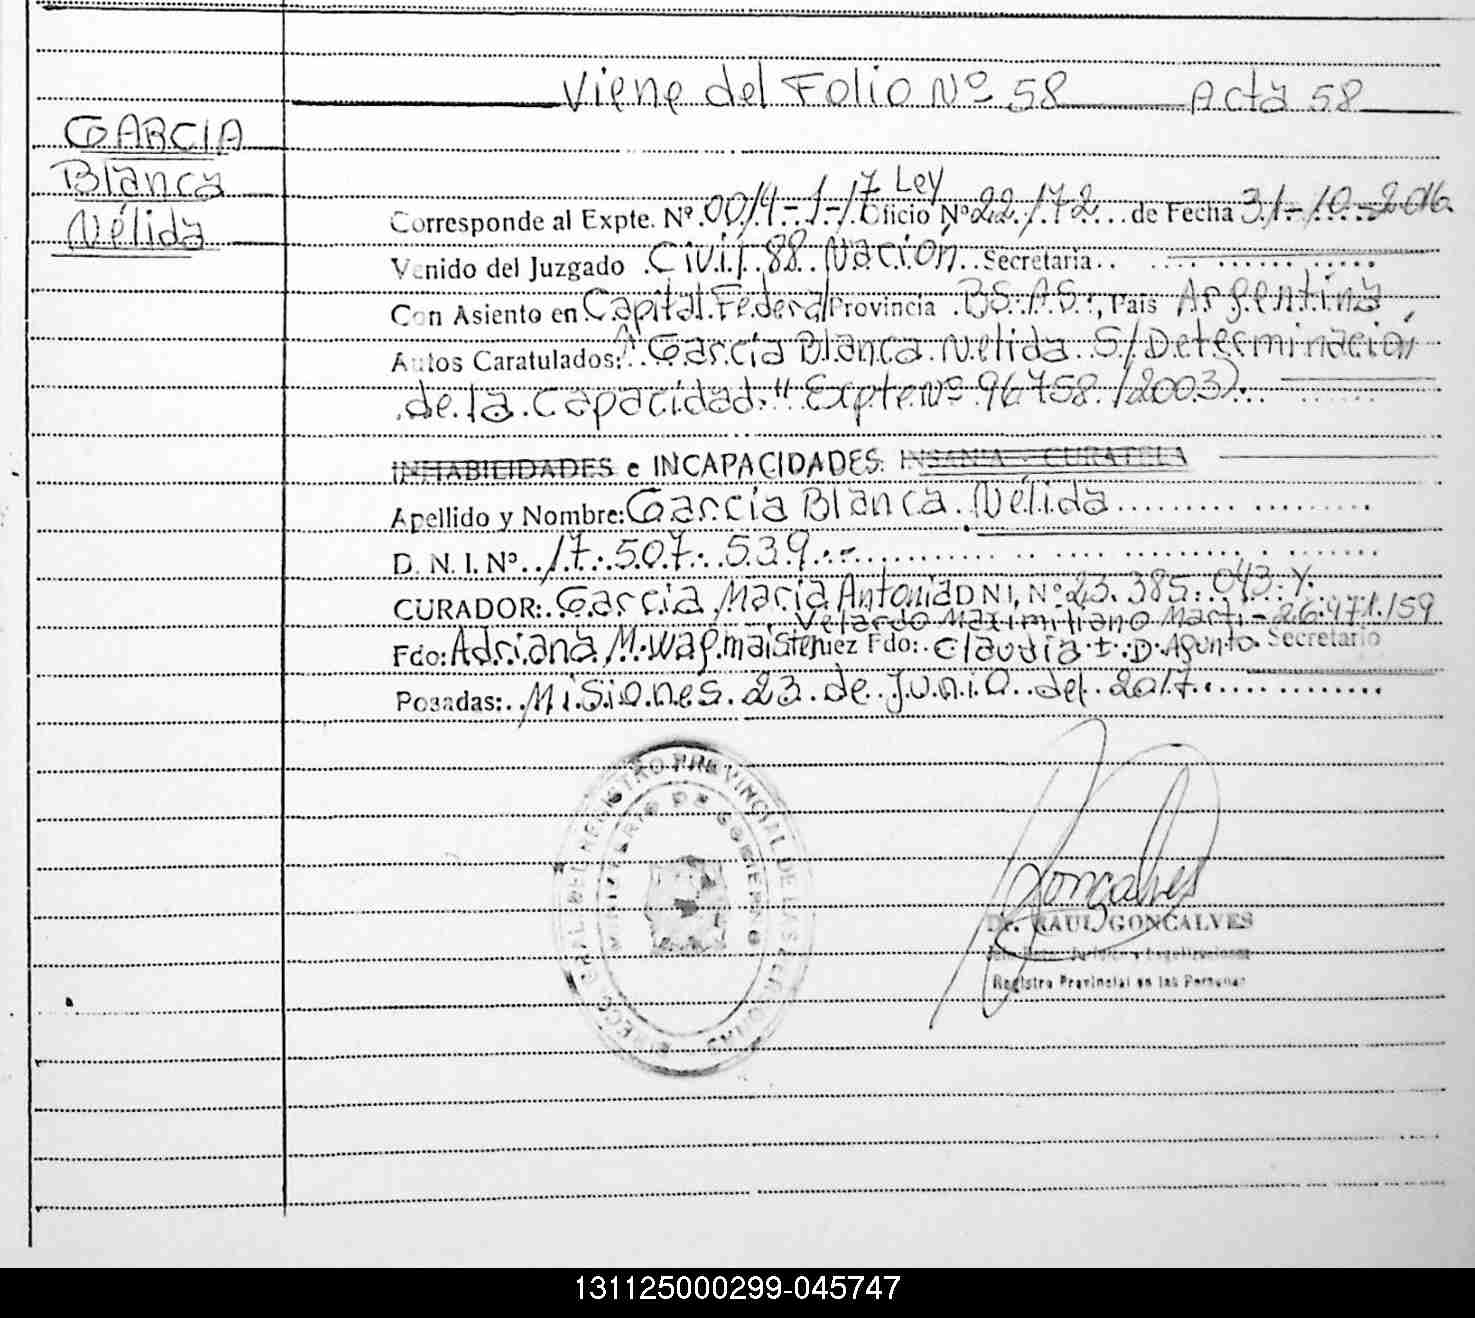 Viene del Folio Nº 58 Acta 58
GARCIA
Blanca
Nélida
Corresponde al Expte. Nº 0014-1-17 Ley Oficio Nº 22.172 de Fecha 31-10-2016.
Venido del Juzgado Civil 88 Nación Secretaria
Con Asiento en Capital Federal Provincia BS. AS., País Argentina
Autos Caratulados: "García Blanca Nélida S/Determinación
de la Capacidad." Expte Nº 96758/2003).
INHABILIDADES e INCAPACIDADES: INSANIA - CURATELA
Apellido y Nombre: García Blanca Nélida
D. N. I. Nº 17.507.539.-
CURADOR: García María Antonia DNI, Nº 23.385.043. Y.
Velardo Maximiliano Marti - 26.471.159
Fdo: Adriana M. Wagmaister Juez Fdo: Claudia I. D. Agunto. Secretario
Posadas: Misiones 23 de Junio del 2017
DIRECC. GRAL. DEL REGISTRO PROVINCIAL DE LAS PERSONAS
MINISTERIO DE GOBIERNO
Goncalves
Dr. RAUL GONCALVES
Registro Provincial de las Personas
131125000299-045747